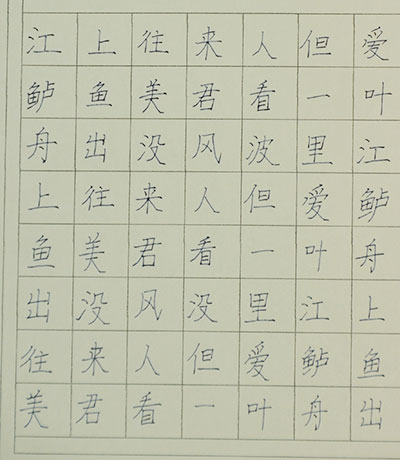 江上往来人但爱
鲈鱼美君看一叶
舟出没风波里江
上往来人但爱鲈
鱼美君看一叶舟
出没风没里江上
往来人但爱鲈鱼
美君看一叶舟出